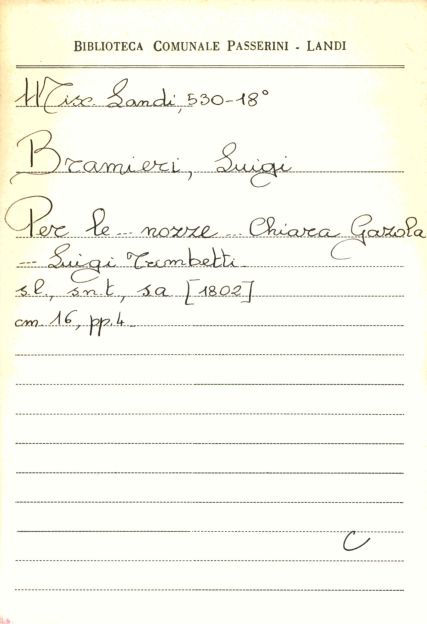 BIBLIOTECA COMUNALE PASSERINI - LANDI
Misc. Landi, 530-18°
Bramieri, Luigi
Per le ... nozze ... Chiara Gazola
... Luigi Trambetti.
s.l., s.n.t., s.a [1802]
cm. 16, pp. 4.
C